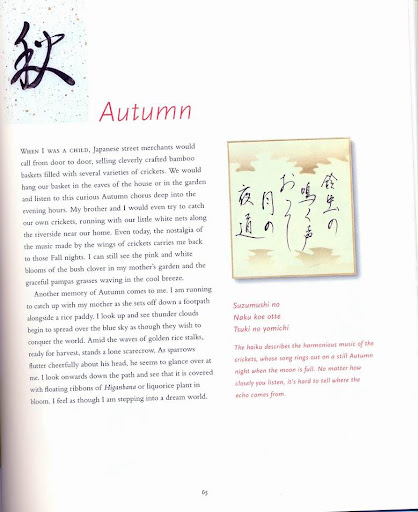 秋
Autumn
WHEN I WAS A CHILD, Japanese street merchants would
call from door to door, selling cleverly crafted bamboo
baskets filled with several varieties of crickets. We would
hang our basket in the eaves of the house or in the garden
and listen to this curious Autumn chorus deep into the
evening hours. My brother and I would even try to catch
our own crickets, running with our little white nets along
the riverside near our home. Even today, the nostalgia of
the music made by the wings of crickets carries me back
to those Fall nights. I can still see the pink and white
blooms of the bush clover in my mother's garden and the
graceful pampas grasses waving in the cool breeze.
Another memory of Autumn comes to me. I am running
to catch up with my mother as she sets off down a footpath
alongside a rice paddy. I look up and see thunder clouds
begin to spread over the blue sky as though they wish to
conquer the world. Amid the waves of golden rice stalks,
ready for harvest, stands a lone scarecrow. As sparrows
flutter cheerfully about his head, he seems to glance over at
me. I look onwards down the path and see that it is covered
with floating ribbons of Higanhana or liquorice plant in
bloom. I feel as though I am stepping into a dream world.
鈴虫の
鳴く声
おつて
月の
夜道
Suzumushi no
Naku koe otte
Tsuki no yomichi
The haiku describes the harmonious music of the
crickets, whose song rings out on a still Autumn
night when the moon is full. No matter how
closely you listen, it's hard to tell where the
echo comes from.
65